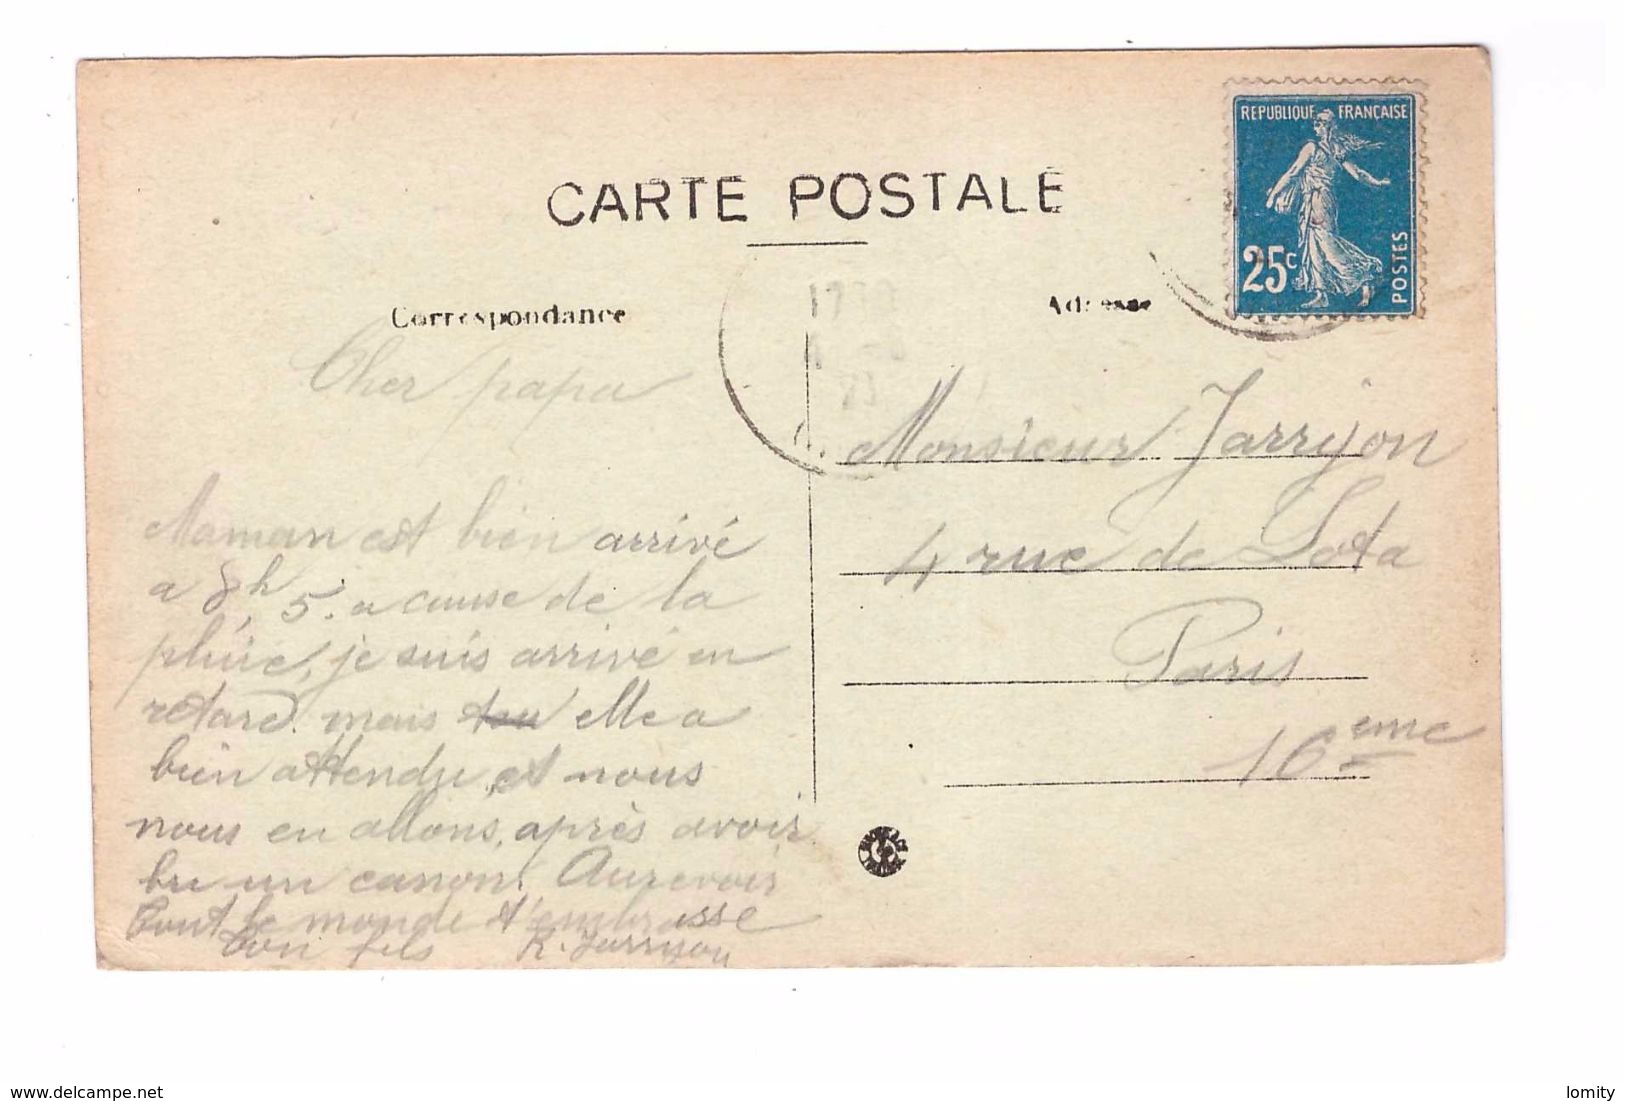 CARTE POSTALE
REPUBLIQUE FRANÇAISE
25c
POSTES
Correspondance
Adresse
Cher papa
Maman est bien arrivé
a 8h 5. a cause de la
pluie, je suis arrivé en
retard. mais elle a
bien attendu et nous
nous en allons, après avoir
bu un canon. Aurevoir
tout le monde t'embrasse
Ton fils R. Jarryon
Monsieur Jarryon
4 rue de Lota
Paris
16eme
delcampe.net
lomity